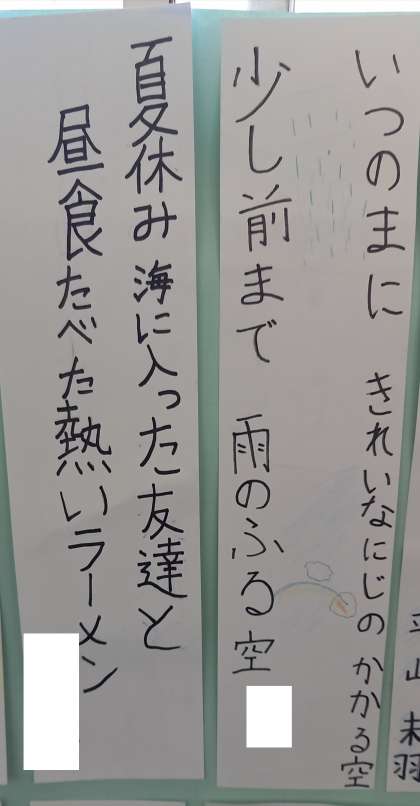 いつのまに　きれいなにじの　かかる空
少し前まで　雨のふる空
夏休み　海に入った友達と
昼食たべた熱いラーメン